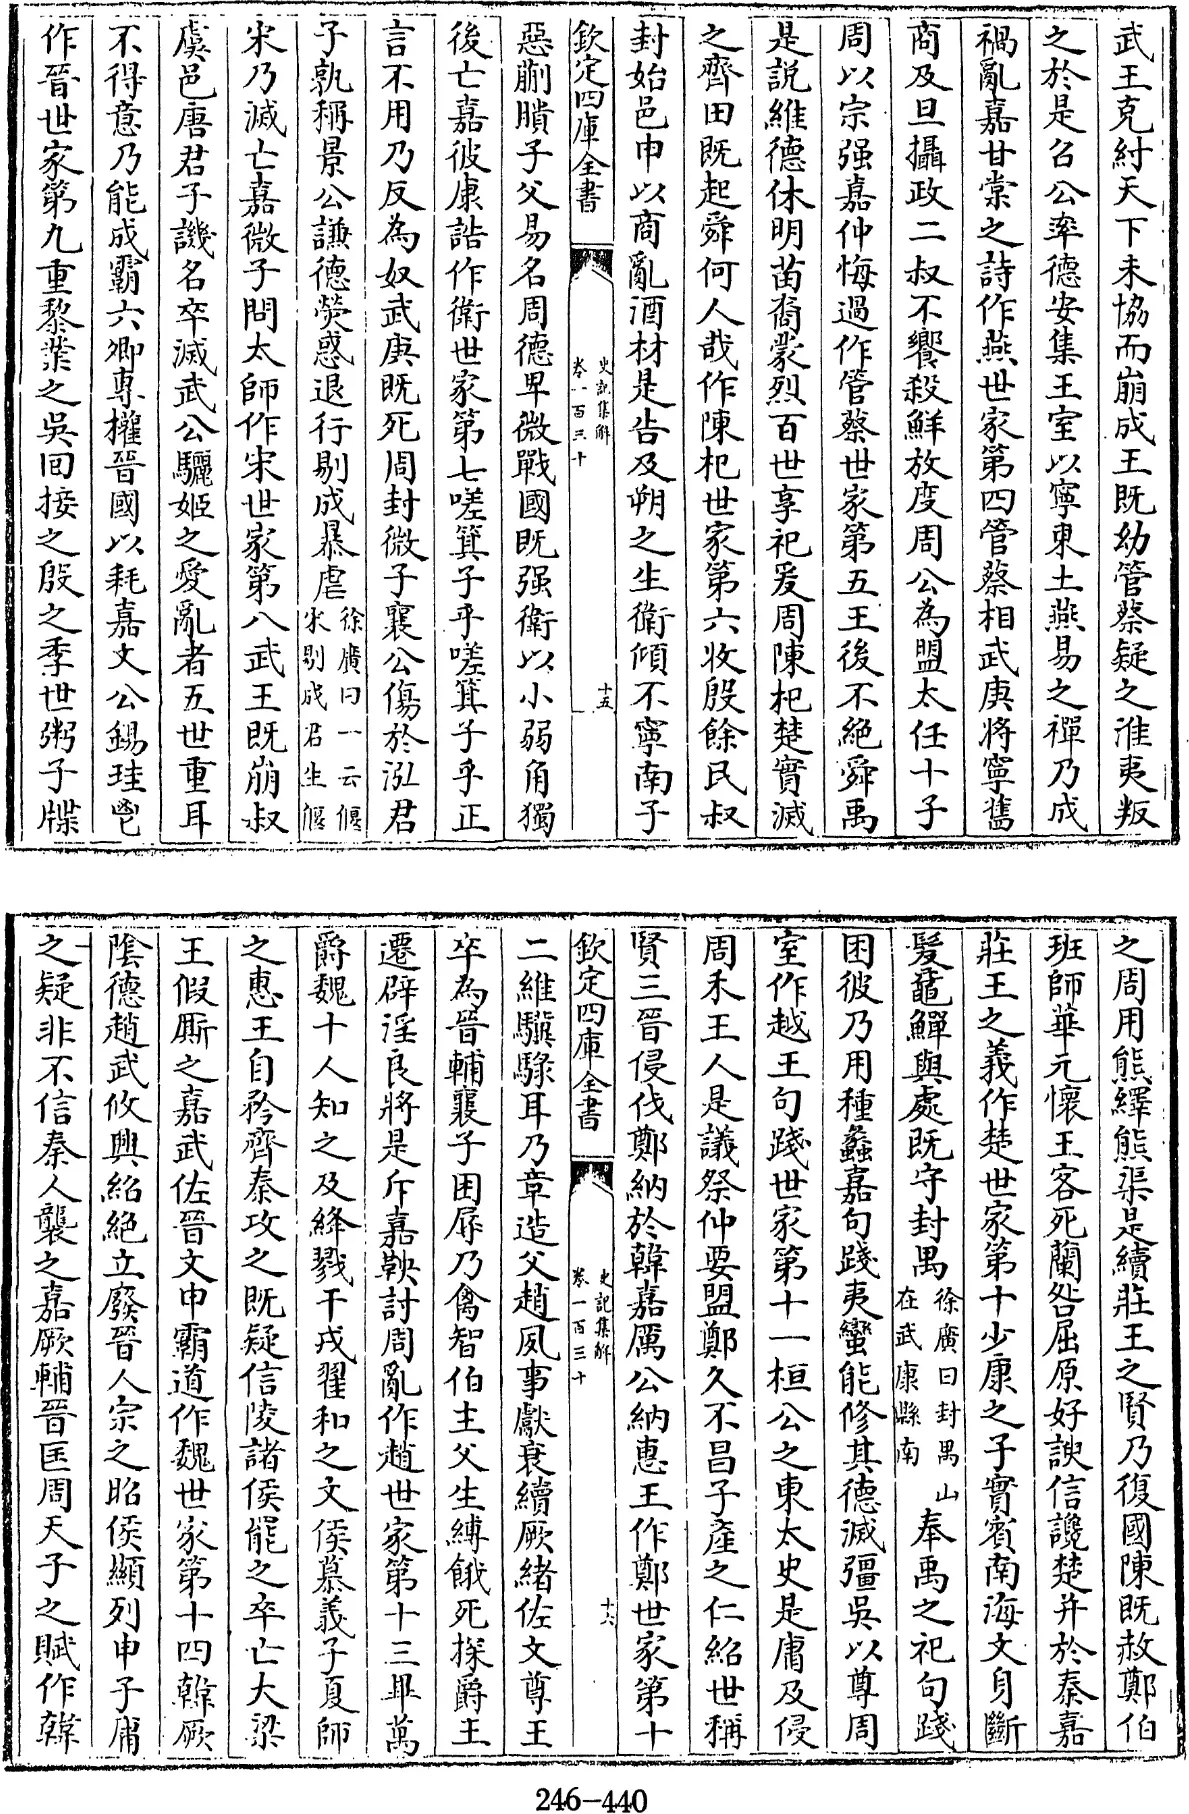 武王克紂天下未協而崩成王既幼管蔡疑之淮夷叛
之於是召公率德安集王室以寧東土燕易之禪乃成
禍亂嘉甘棠之詩作燕世家第四管蔡相武庚將寧舊
商及旦攝政二叔不饗殺鮮放度周公為盟太任十子
周以宗强嘉仲悔過作管蔡世家第五王後不絶舜禹
是説維德休明苗裔蒙烈百世享祀爰周陳杞楚實滅
之齊田既起舜何人哉作陳杞世家第六收殷餘民叔
封始邑申以商亂酒材是告及朔之生衛傾不寧南子
欽定四庫全書
史記集解
卷一百三十
十五
惡蒯聵子父易名周德卑微戰國既强衛以小弱角獨
後亡嘉彼康誥作衛世家第七嗟箕子乎嗟箕子乎正
言不用乃反為奴武庚既死周封微子襄公傷於泓君
子孰稱景公謙德熒惑退行剔成暴虐徐廣曰一云偃宋剔成君生偃
宋乃滅亡嘉微子問太師作宋世家第八武王既崩叔
虞邑唐君子譏名卒滅武公驪姬之愛亂者五世重耳
不得意乃能成霸六卿專權晉國以耗嘉文公錫珪鬯
作晉世家第九重黎業之吳回接之殷之季世粥子牒
之周用熊繹熊渠是續莊王之賢乃復國陳既赦鄭伯
班師華元懷王客死蘭咎屈原好諛信讒楚并於秦嘉
莊王之義作楚世家第十少康之子實賓南海文身斷
髮黿鱓與處既守封禺徐廣曰封禺山在武康縣南奉禹之祀句踐
困彼乃用種蠡嘉句踐夷蠻能修其德滅彊吳以尊周
室作越王句踐世家第十一桓公之東太史是庸及侵
周禾王人是議祭仲要盟鄭久不昌子產之仁紹世稱
賢三晉侵伐鄭納於韓嘉厲公納惠王作鄭世家第十
欽定四庫全書
史記集解
卷一百三十
十六
二維驥騄耳乃章造父趙夙事獻衰續厥緒佐文尊王
卒為晉輔襄子困辱乃禽智伯主父生縛餓死探爵王
遷辟淫良將是斥嘉鞅討周亂作趙世家第十三畢萬
爵魏卜人知之及絳戮干戎翟和之文侯慕義子夏師
之惠王自矜齊秦攻之既疑信陵諸侯罷之卒亡大梁
王假廝之嘉武佐晉文申霸道作魏世家第十四韓厥
陰德趙武攸興紹絶立廢晉人宗之昭侯顯列申子庸
之疑非不信秦人襲之嘉厥輔晉匡周天子之賦作韓
246-440